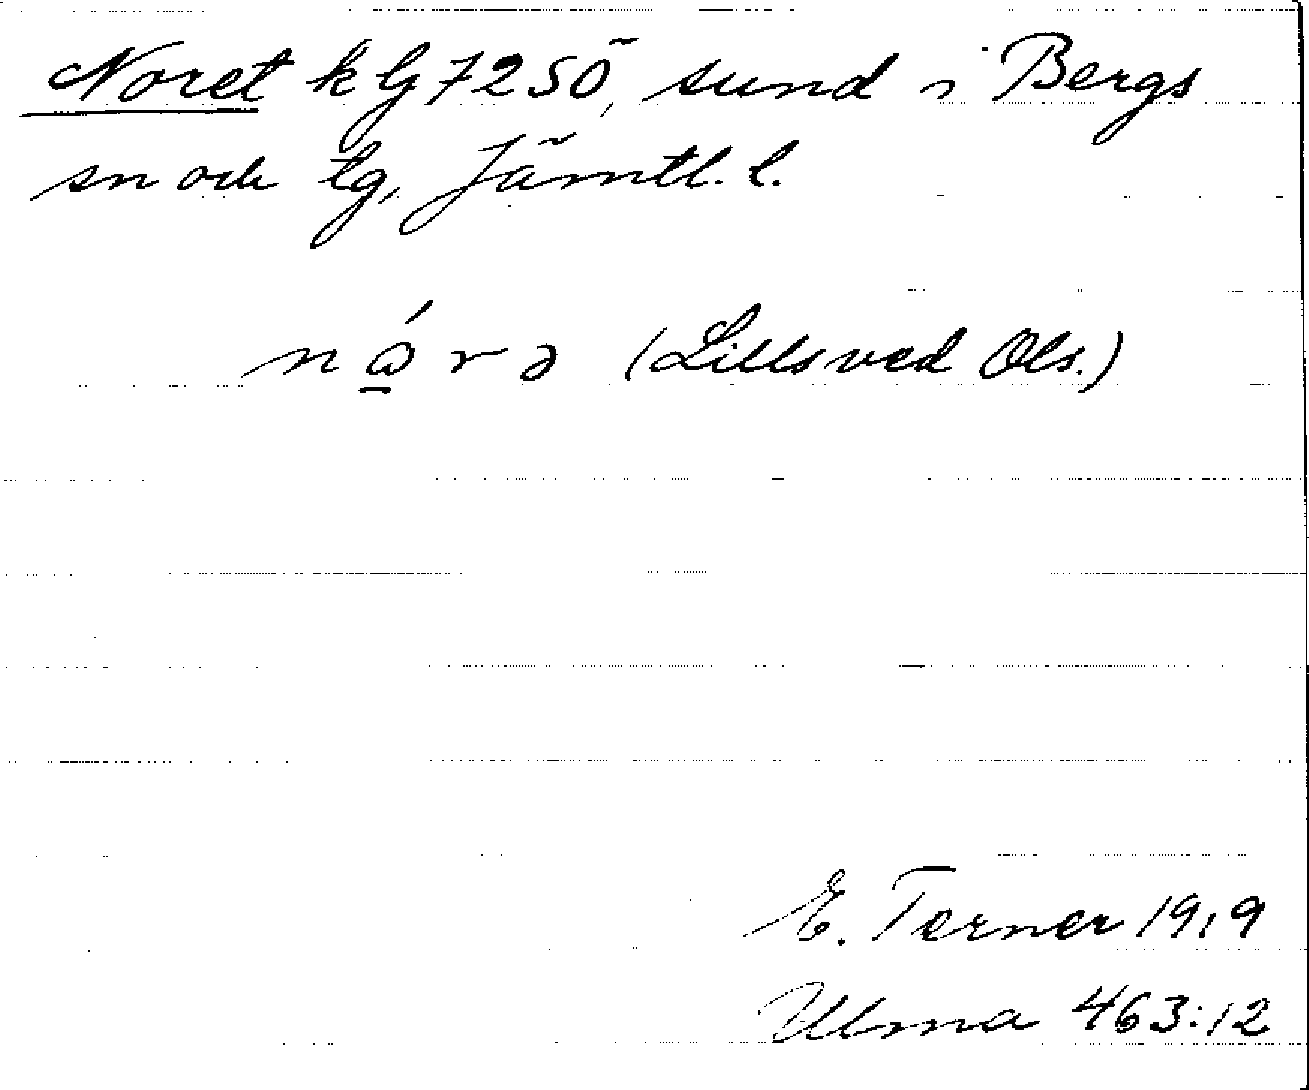 Noret kG7250, sund i Bergs
sn och tg, Jämtl. l.
nǻrə (Lillsved Ols.)
E. Terner 1919
Ulma 463:12